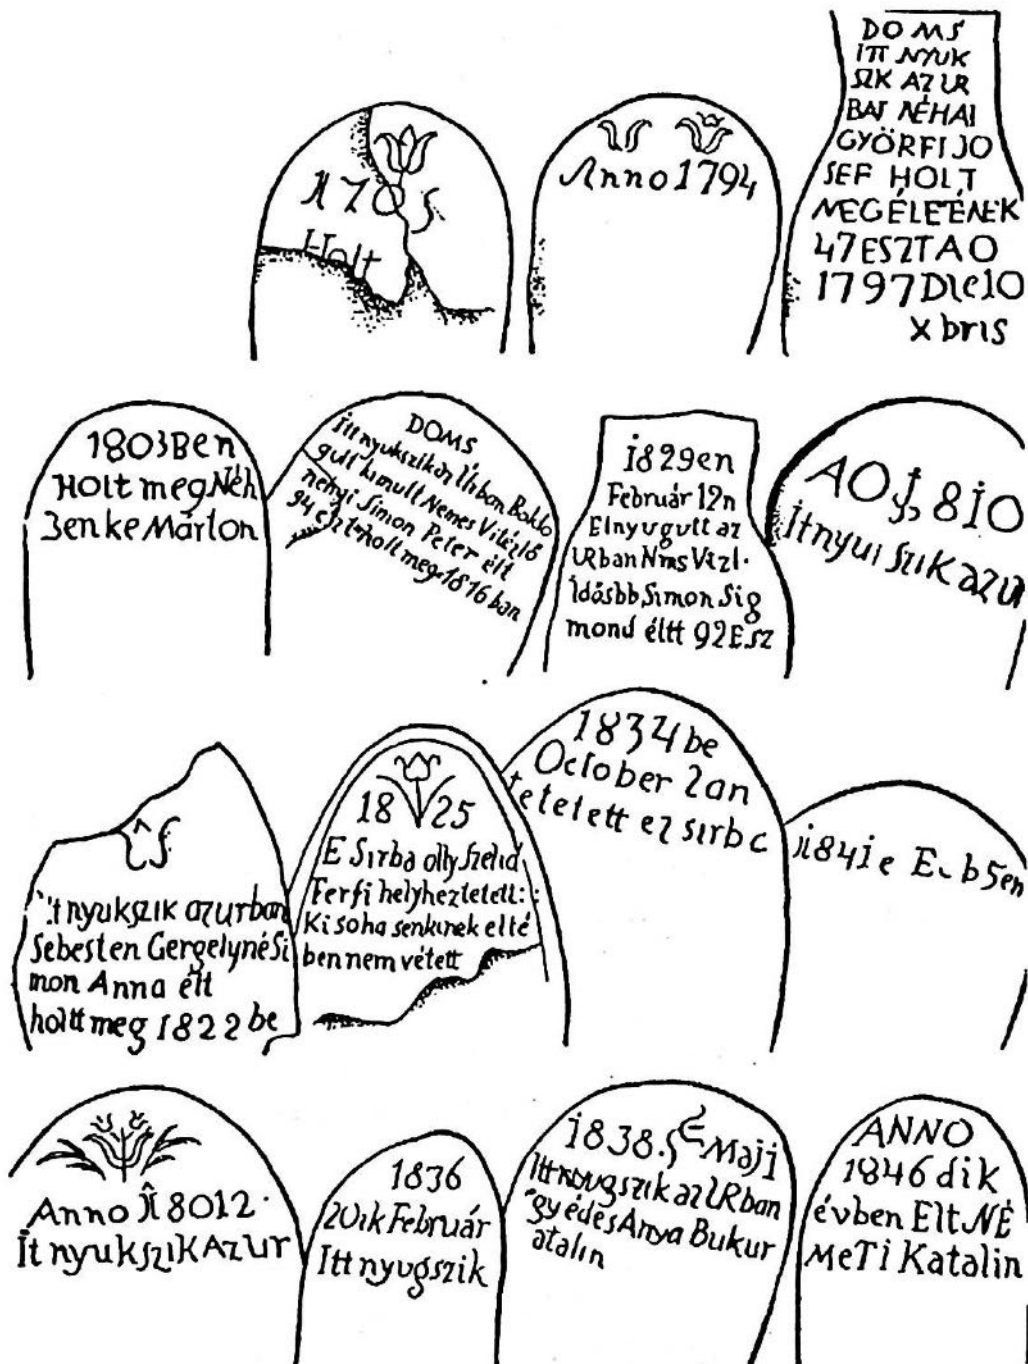 1705
Holt
Anno 1794
DOMS
ITT NYUK
SZIK AZ UR
BAN NÉHAI
GYÖRFI JO
SEF HOLT
MEG ÉLETÉNEK
47 ESZT AO
1797 Die 10
X bris
1803 Ben
Holt meg Néh
Benke Márton
DOMS
Itt nyukszik an Urban Boldo
gult kimult Nemes Vitézlő
néhyi Simon Peter élt
94 eszt holt meg 1816 ban
i829 en
Február 12n
Elnyugutt az
URban Nms Vtzl.
Idősbb Simon Sig
mond éltt 92 Esz
AO 18i0
itnyui szik azu
it nyukszik azurban
Sebesten Gergelyné Si
mon Anna élt
holtt meg 1822 be
18 25
E Sirba olly szelid
Ferfi helyheztetett:
Ki soha senkinek elté
ben nem vétett
1834 be
October 2an
tetetett ez sirb
i84i e 5en
Anno 8012
It nyukszik Az Ur
1836
20ik Február
Itt nyugszik
i838. Maji
Itt nyugszik az URban
gy édes Anya Bukur
atalin
ANNO
1846 dik
évben Elt NÉ
MeTi Katalin